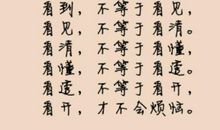 看到，不等于看见，
看见，不等于看清。
看清，不等于看懂，
看懂，不等于看透。
看透，不等于看开，
看开，才不会烦恼。